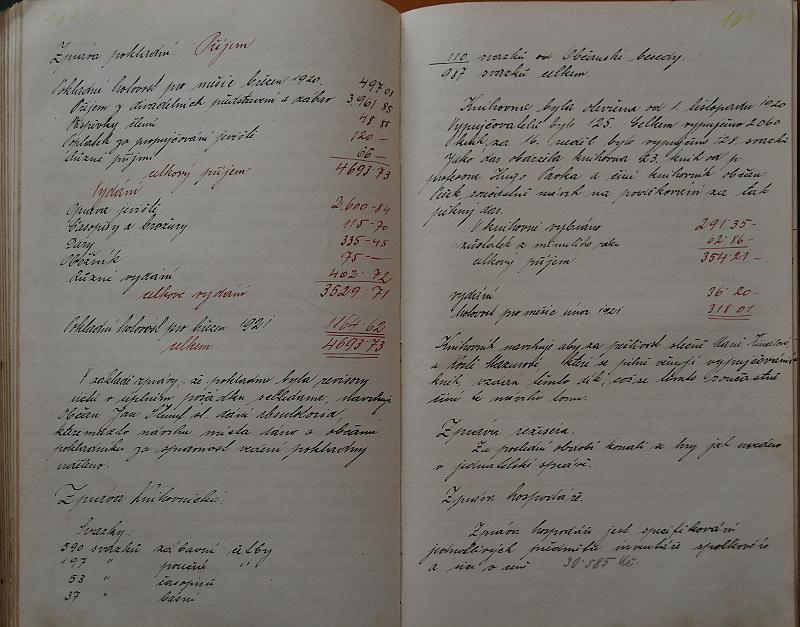 140
Zpráva pokladní. Příjem
Pokladní hotovost pro měsíc březen 1920. 497 08
Příjem z divadelních představení a zábav 3.961 85
Příspěvky členů 48 80
Poplatek za propujčování jeviště 120 —
Různé příjmy 66 —
celkový příjem 4693·73
Vydání
Oprava jeviště 2.600-84
Časopisy a brožury 115-70
Dary 335-45
Oběžník 75 —
Různé vydání 402·72
celkové vydání 3529·71
Pokladní hotovost pro březen 1921 1164·62
celkem 4693·73
V základě zprávy, že pokladna byla revisory
účtů v úplném pořádku shledána, navrhuje
Občan Jan dosavní absolutoria,
kteremužto návrhu místa dáno a občanu
pokladníku za správnost vedení pokladny
uděleno.
Zpráva Knihovnická:
Svazky:
590 svazků zábavní četby
197 " poučné "
53 " časopisů
37 " básní
141
110 svazků od Občanské besedy.
987 svazků celkem.
Knihovna byla otevřena od 1. listopadu 1920
Vypujčovatelů bylo 125. Celkem vypujčeno 2060
knih, za 16. neděl bylo vypujčeno 128. svazků
Jako dar obdržela knihovna 23. knih od p.
profesora Hugo a činí knihovník občan
současně návrh na poděkování za tak
pěkný dar.
V knihovně vybráno 291 35-
zůstatek z minulého roku 62·86-
celkový příjem 354·21-
vydání 36·20-
hotovost pro měsíc únor 1921 318 01
Knihovník navrhuje aby za pečlivost slečně Mani
a které se pilně věnují vypujčování
knih, vzdán tímto dík, což se tímto současně
činí dle návrhu tomu.
Zpráva režiséra.
Za poslední období konali se hry jak uvedeno
v jednatelské zprávě.
Zpráva hospodáře.
Zpráva hospodáře jest specifikování
jednotlivých předmětů inventáře spolkového
a sice v ceně 30·585 Kč.